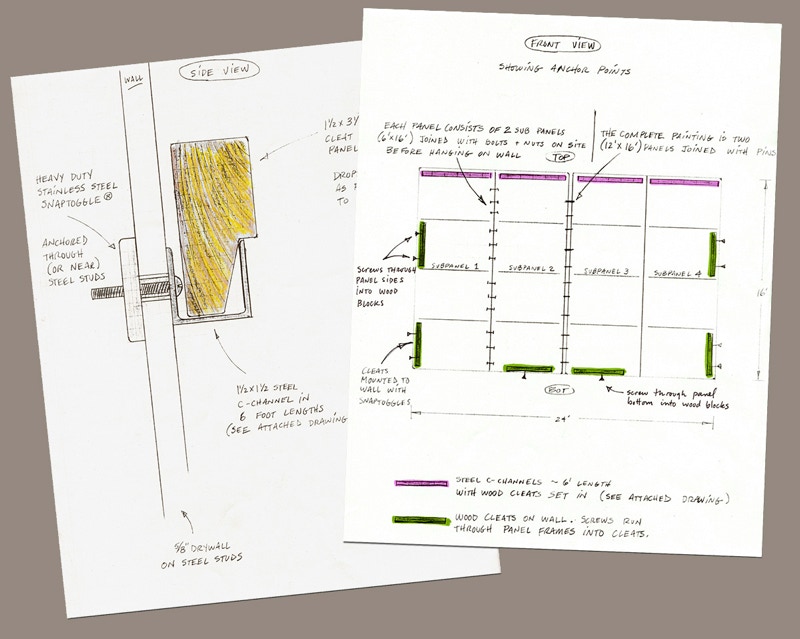 SIDE VIEW
WALL
1½ x 3½
CLEAT
PANEL
DROP
AS
TO
HEAVY DUTY
STAINLESS STEEL
SNAPTOGGLE®
ANCHORED
THROUGH
(OR NEAR)
STEEL STUDS
1½ x 1½ STEEL
C-CHANNEL IN
6 FOOT LENGTHS
(SEE ATTACHED DRAWING
5/8" DRYWALL
ON STEEL STUDS
FRONT VIEW
SHOWING ANCHOR POINTS
EACH PANEL CONSISTS OF 2 SUB PANELS
(6'x16') JOINED WITH BOLTS + NUTS ON SITE
BEFORE HANGING ON WALL
THE COMPLETE PAINTING IS TWO
(12'x16') PANELS JOINED WITH PINS
TOP
SUBPANEL 1
SUBPANEL 2
SUBPANEL 3
SUBPANEL 4
SCREWS THROUGH
PANEL SIDES
INTO WOOD
BLOCKS
16'
CLEATS
MOUNTED TO
WALL WITH
SNAPTOGGLES
BOT
screw through panel
bottom into wood blocks
24'
STEEL C-CHANNELS ~ 6' LENGTH
WITH WOOD CLEATS SET IN (SEE ATTACHED DRAWING)
WOOD CLEATS ON WALL. SCREWS RUN
THROUGH PANEL FRAMES INTO CLEATS.